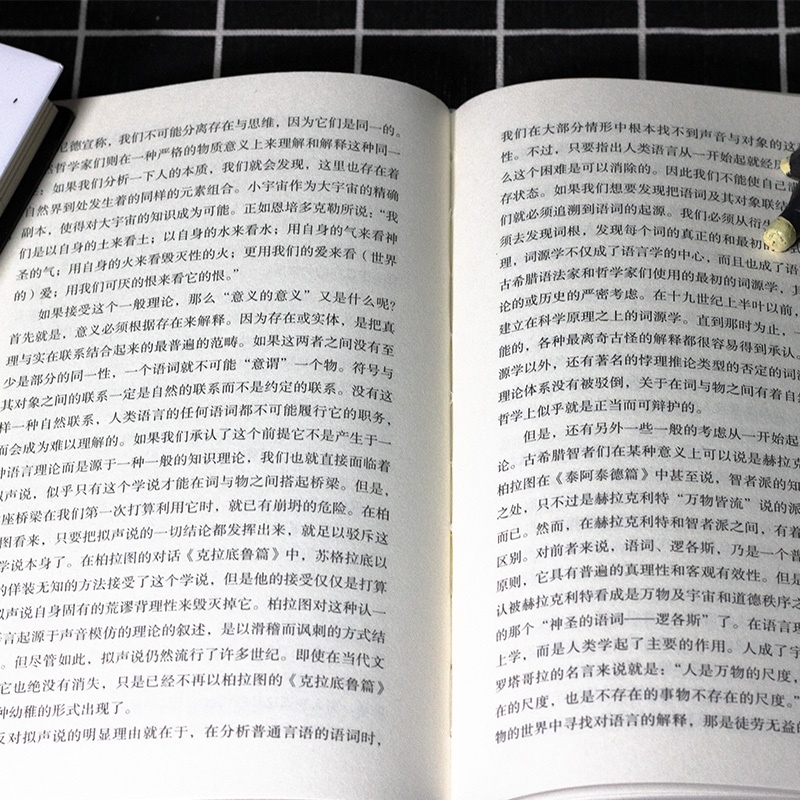 尼德宣称，我们不可能分离存在与思维，因为它们是同一的。
哲学家们则在一种严格的物质意义上来理解和解释这种同一
：如果我们分析一下人的本质，我们就会发现，这里也存在着
自然界到处发生着的同样的元素组合。小宇宙作为大宇宙的精确
副本，使得对大宇宙的知识成为可能。正如恩培多克勒所说：“我
们是以自身的土来看土；以自身的水来看水；用自身的气来看神
圣的气；用自身的火来看毁灭性的火；更用我们的爱来看（世界
的）爱；用我们可厌的恨来看它的恨。”
如果接受这个一般理论，那么“意义的意义”又是什么呢？
首先就是，意义必须根据存在来解释。因为存在或实体，是把真
理与实在联系结合起来的最普遍的范畴。如果这两者之间没有至
少是部分的同一性，一个语词就不可能“意谓”一个物。符号与
其对象之间的联系一定是自然的联系而不是约定的联系。没有这
样一种自然联系，人类语言的任何语词都不可能履行它的职务，
而会成为难以理解的。如果我们承认了这个前提它不是产生于一
种语言理论而是源于一种一般的知识理论，我们也就直接面临着
拟声说，似乎只有这个学说才能在词与物之间搭起桥梁。但是，
座桥梁在我们第一次打算利用它时，就已有崩坍的危险。在柏
图看来，只要把拟声说的一切结论都发挥出来，就足以驳斥这
学说本身了。在柏拉图的对话《克拉底鲁篇》中，苏格拉底以
的佯装无知的方法接受了这个学说，但是他的接受仅仅是打算
拟声说自身固有的荒谬背理性来毁灭掉它。柏拉图对这种认一
言起源于声音模仿的理论的叙述，是以滑稽而讽刺的方式结
。但尽管如此，拟声说仍然流行了许多世纪。即使在当代文
它也绝没有消失，只是已经不再以柏拉图的《克拉底鲁篇》
种幼稚的形式出现了。
反对拟声说的明显理由就在于，在分析普通言语的语词时，
我们在大部分情形中根本找不到声音与对象的这
性。不过，只要指出人类语言从一开始起就经
么这个困难是可以消除的。因此我们不能使自己满
存状态。如果我们想要发现把语词及其对象联结
们就必须追溯到语词的起源。我们必须从衍生
须去发现词根，发现每个词的真正的和最初的
理，词源学不仅成了语言学的中心，而且也成了语
古希腊语法家和哲学家们使用的最初的词源学，其
论的或历史的严密考虑。在十九世纪上半叶以前，
建立在科学原理之上的词源学。直到那时为止，一
能的，各种最离奇古怪的解释都很容易得到承认。
源学以外，还有著名的悖理推论类型的否定的词源
理论体系没有被驳倒，关于在词与物之间有着自然
哲学上似乎就是正当而可辩护的。
但是，还有另外一些一般的考虑从一开始起
论。古希腊智者们在某种意义上可以说是赫拉克
柏拉图在《泰阿泰德篇》中甚至说，智者派的知
之处，只不过是赫拉克利特“万物皆流”说的派
而已。然而，在赫拉克利特和智者派之间，有着
区别。对前者来说，语词、逻各斯，乃是一个普
原则，它具有普遍的真理性和客观有效性。但是
认被赫拉克利特看成是万物及宇宙和道德秩序之
的那个“神圣的语词——逻各斯”了。在语言理
上学，而是人类学起了主要的作用。人成了宇
罗塔哥拉的名言来说就是：“人是万物的尺度，
在的尺度，也是不存在的事物不存在的尺度。”
物的世界中寻找对语言的解释，那是徒劳无益的